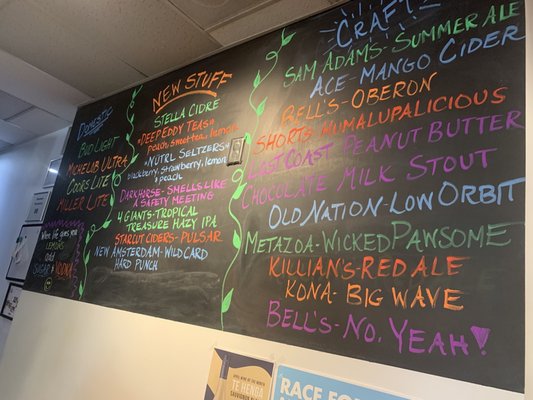 Domestic
Bud Light
Michelib Ultra
Coors Lite
Miller Lite
When life gives you
LEMONS
add
SUGAR
& VODKA
New Stuff
Stella Cidre
"Deep Eddy Teas"
Peach, sweet tea, lemon
"NUTRL Seltzers"
blackberry, strawberry, lemon
& peach
Darkhorse-Smells Like
a Safety Meeting
4 Giants-Tropical
Treasure Hazy IPA
Starcut Ciders-Pulsar
New Amsterdam-Wild Card
Hard Punch
Craft
Sam Adams-Summer Ale
Ace-Mango Cider
Bell's-Oberon
Shorts Wumalupalicious
Last Coast Peanut Butter
Chocolate Milk Stout
Old Nation-Low Orbit
Metazoa-Wicked Pawsome
Killian's-Red Ale
Kona-Big Wave
Bell's-No, Yeah!
APRIL WINE OF THE MONTH
TE HENGA
SAUVIGNON BLANC
RACE FOR